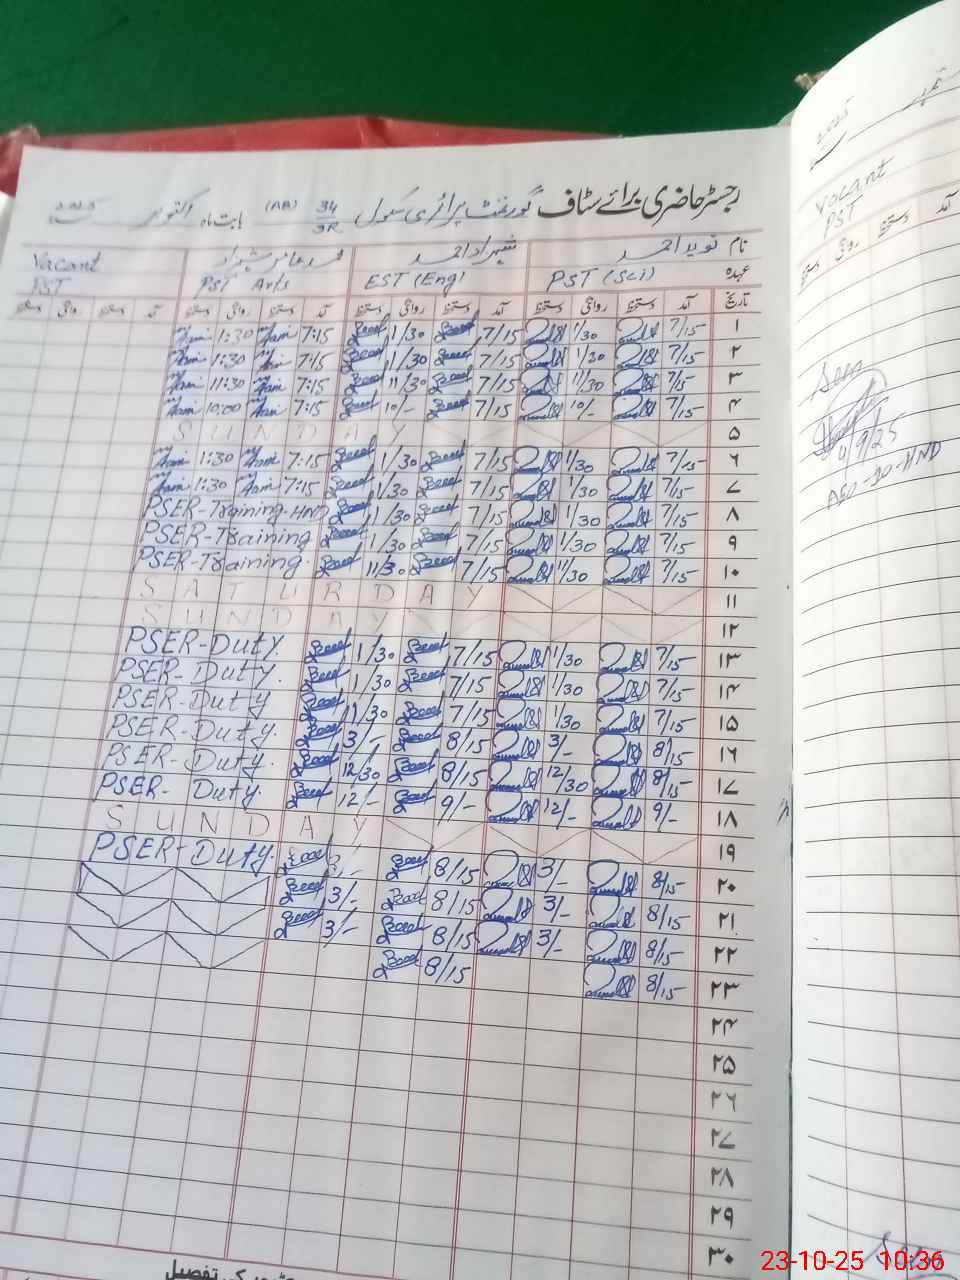 رجسٹر حاضری برائے سٹاف گورنمنٹ پرائمری سکول 34/3R (AB) بابت ماہ اکتوبر ۲۰۲۵
نام نوید احمد شہزاد احمد Vacant
عہدہ PST (Sci) EST (Eng) PST Arts PST
تاریخ آمد دستخط روانگی دستخط آمد دستخط روانگی دستخط آمد دستخط روانگی دستخط آمد دستخط روانگی دستخط
۱ 7/15 1/30 7/15 1/30 7:15 1:30
۲ 7/15 1/30 7/15 1/30 7:15 1:30
۳ 7/15 11/30 7/15 11/30 7:15 11:30
۴ 7/15 10/- 7/15 10/- 7:15 10:00
۵ SUNDAY
۶ 7/15 1/30 7/15 1/30 7:15 1:30
۷ 7/15 1/30 7/15 1/30 7:15 1:30
۸ 7/15 1/30 7/15 11/30 PSER-Training-HND
۹ 7/15 1/30 7/15 1/30 PSER-Training
۱۰ 7/15 11/30 7/15 11/30 PSER-Training.
۱۱ SATURDAY
۱۲ SUNDAY
۱۳ 7/15 1/30 7/15 1/30 PSER-Duty.
۱۴ 7/15 1/30 7/15 1/30 PSER-Duty.
۱۵ 7/15 1/30 7/15 11/30 PSER-Duty
۱۶ 8/15 3/- 8/15 3/- PSER-Duty.
۱۷ 8/15 12/30 8/15 12/30 PSER-Duty.
۱۸ 9/- 12/- 9/- 12/- PSER-Duty.
۱۹ SUNDAY
۲۰ 8/15 3/- 8/15 3/- PSER-Duty.
۲۱ 8/15 3/- 8/15 3/-
۲۲ 8/15 3/- 8/15 3/-
۲۳ 8/15 8/15
۲۴
۲۵
۲۶
۲۷
۲۸
۲۹
۳۰
کی تفصیل
ستمبر ۲۰۲۵
Vacant
PST
آمد دستخط روانگی دستخط
Seen
9/25
AEO-30-HND
Seen
23-10-25 10:36